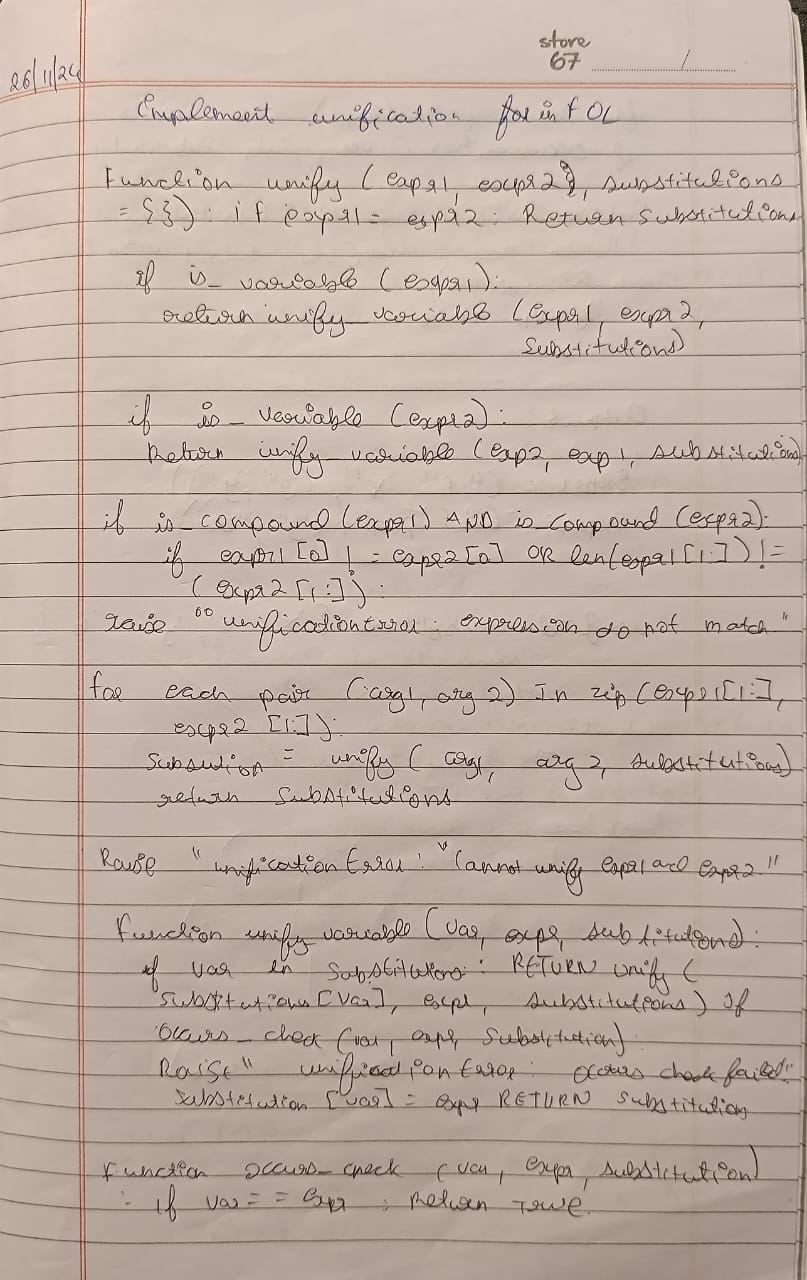 store
67
26/11/24
Implement unification for in FOL
Function unify (expr1, expr2}, substitutions
= {}): if expr1 = expr2: Return Substitutions
if is_variable (expr1):
return unify_variable (expr1, expr2,
Substitutions)
if is_variable (expr2):
Return unify_variable (exp2, exp1, substitutions)
if is_compound (expr1) AND is_compound (expr2):
if expr1 [0] != expr2 [0] OR len(expr1 [1:]) !=
(expr2 [1:]):
raise "unification Error: expression do not match"
for each pair (arg1, arg 2) In zip (expr1[1:],
expr2 [1:]):
Subsution = unify ( arg1, arg 2, substitutions)
return Substitutions
Raise "unification Error: "Cannot unify expr1 and expr2"
Function unify variable (var, expr, substitutions):
if var in Substitutions: RETURN unify (
Substitutions [var], expr, substitutions) if
Occurs_check (var, expr, Substitution):
Raise "unification Error: occurs check failed"
Substitution [var] = expr RETURN Substitution
Function occurs_check (var, expr, substitution)
: if var = = expr : Return True.